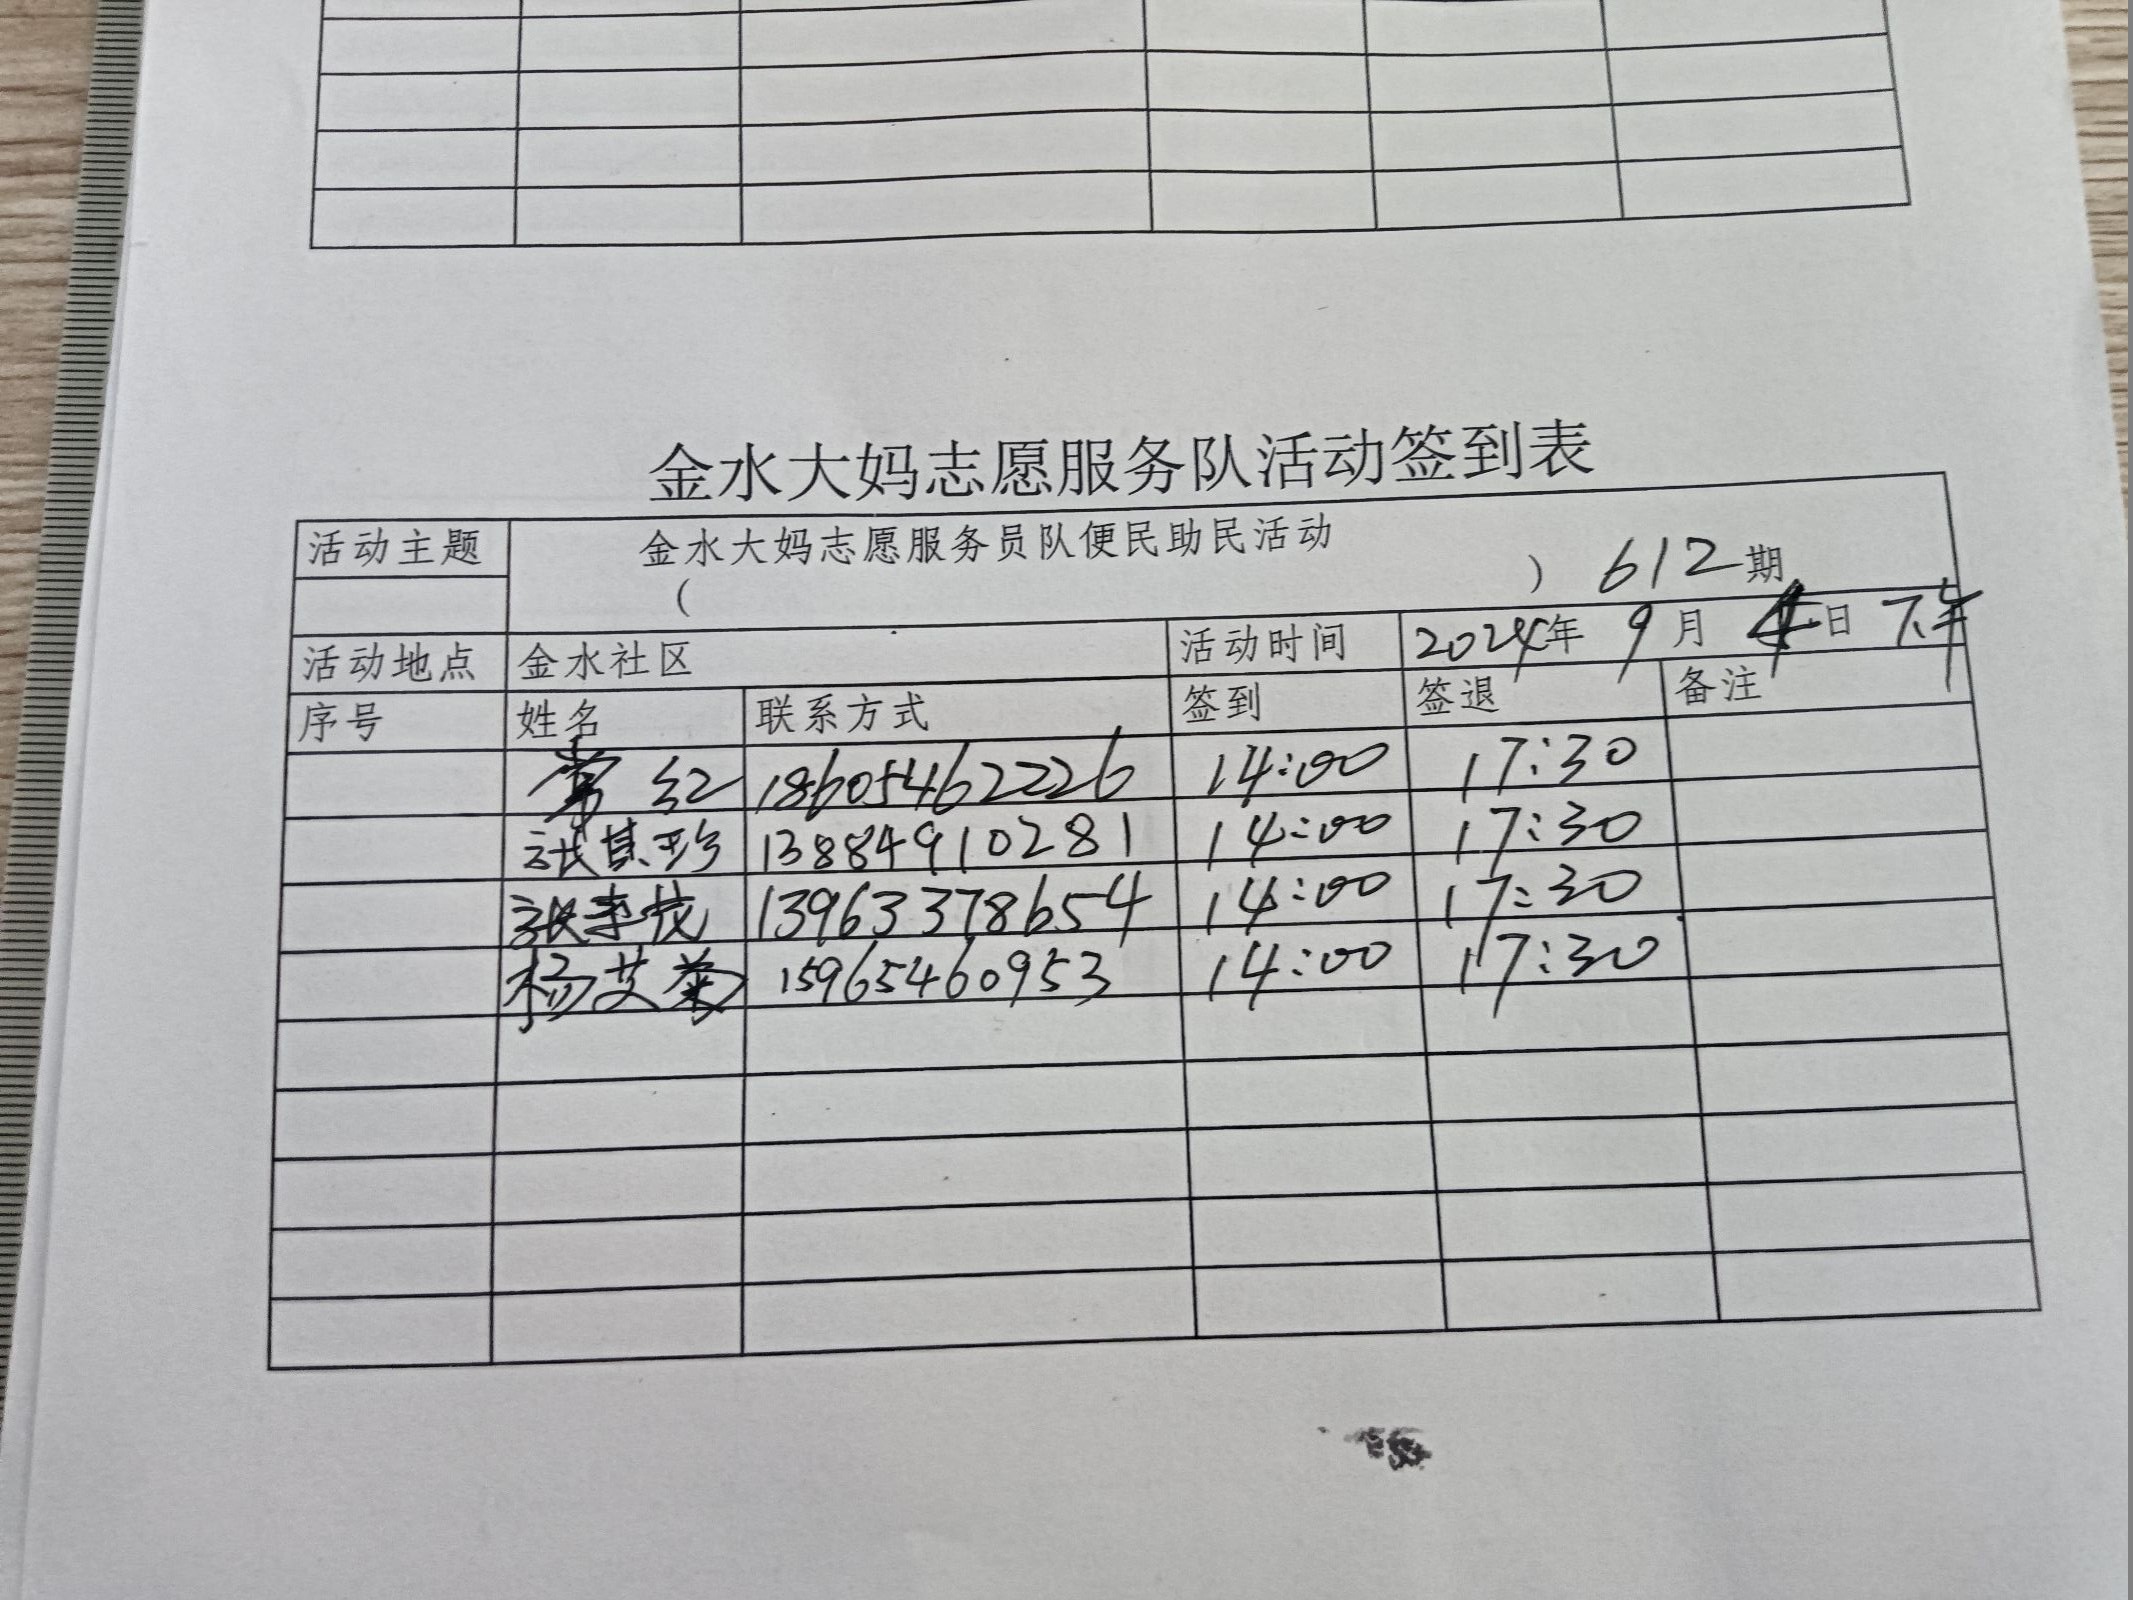 金水大妈志愿服务队活动签到表
活动主题 金水大妈志愿服务员队便民助民活动
( ) 612期
活动地点 金水社区 活动时间 2024年 9月 4日 下午
序号 姓名 联系方式 签到 签退 备注
常红 18605462226 14:00 17:30
张其珍 13884910281 14:00 17:30
张 13963378654 14:00 17:30
杨艾菊 15965460953 14:00 17:30